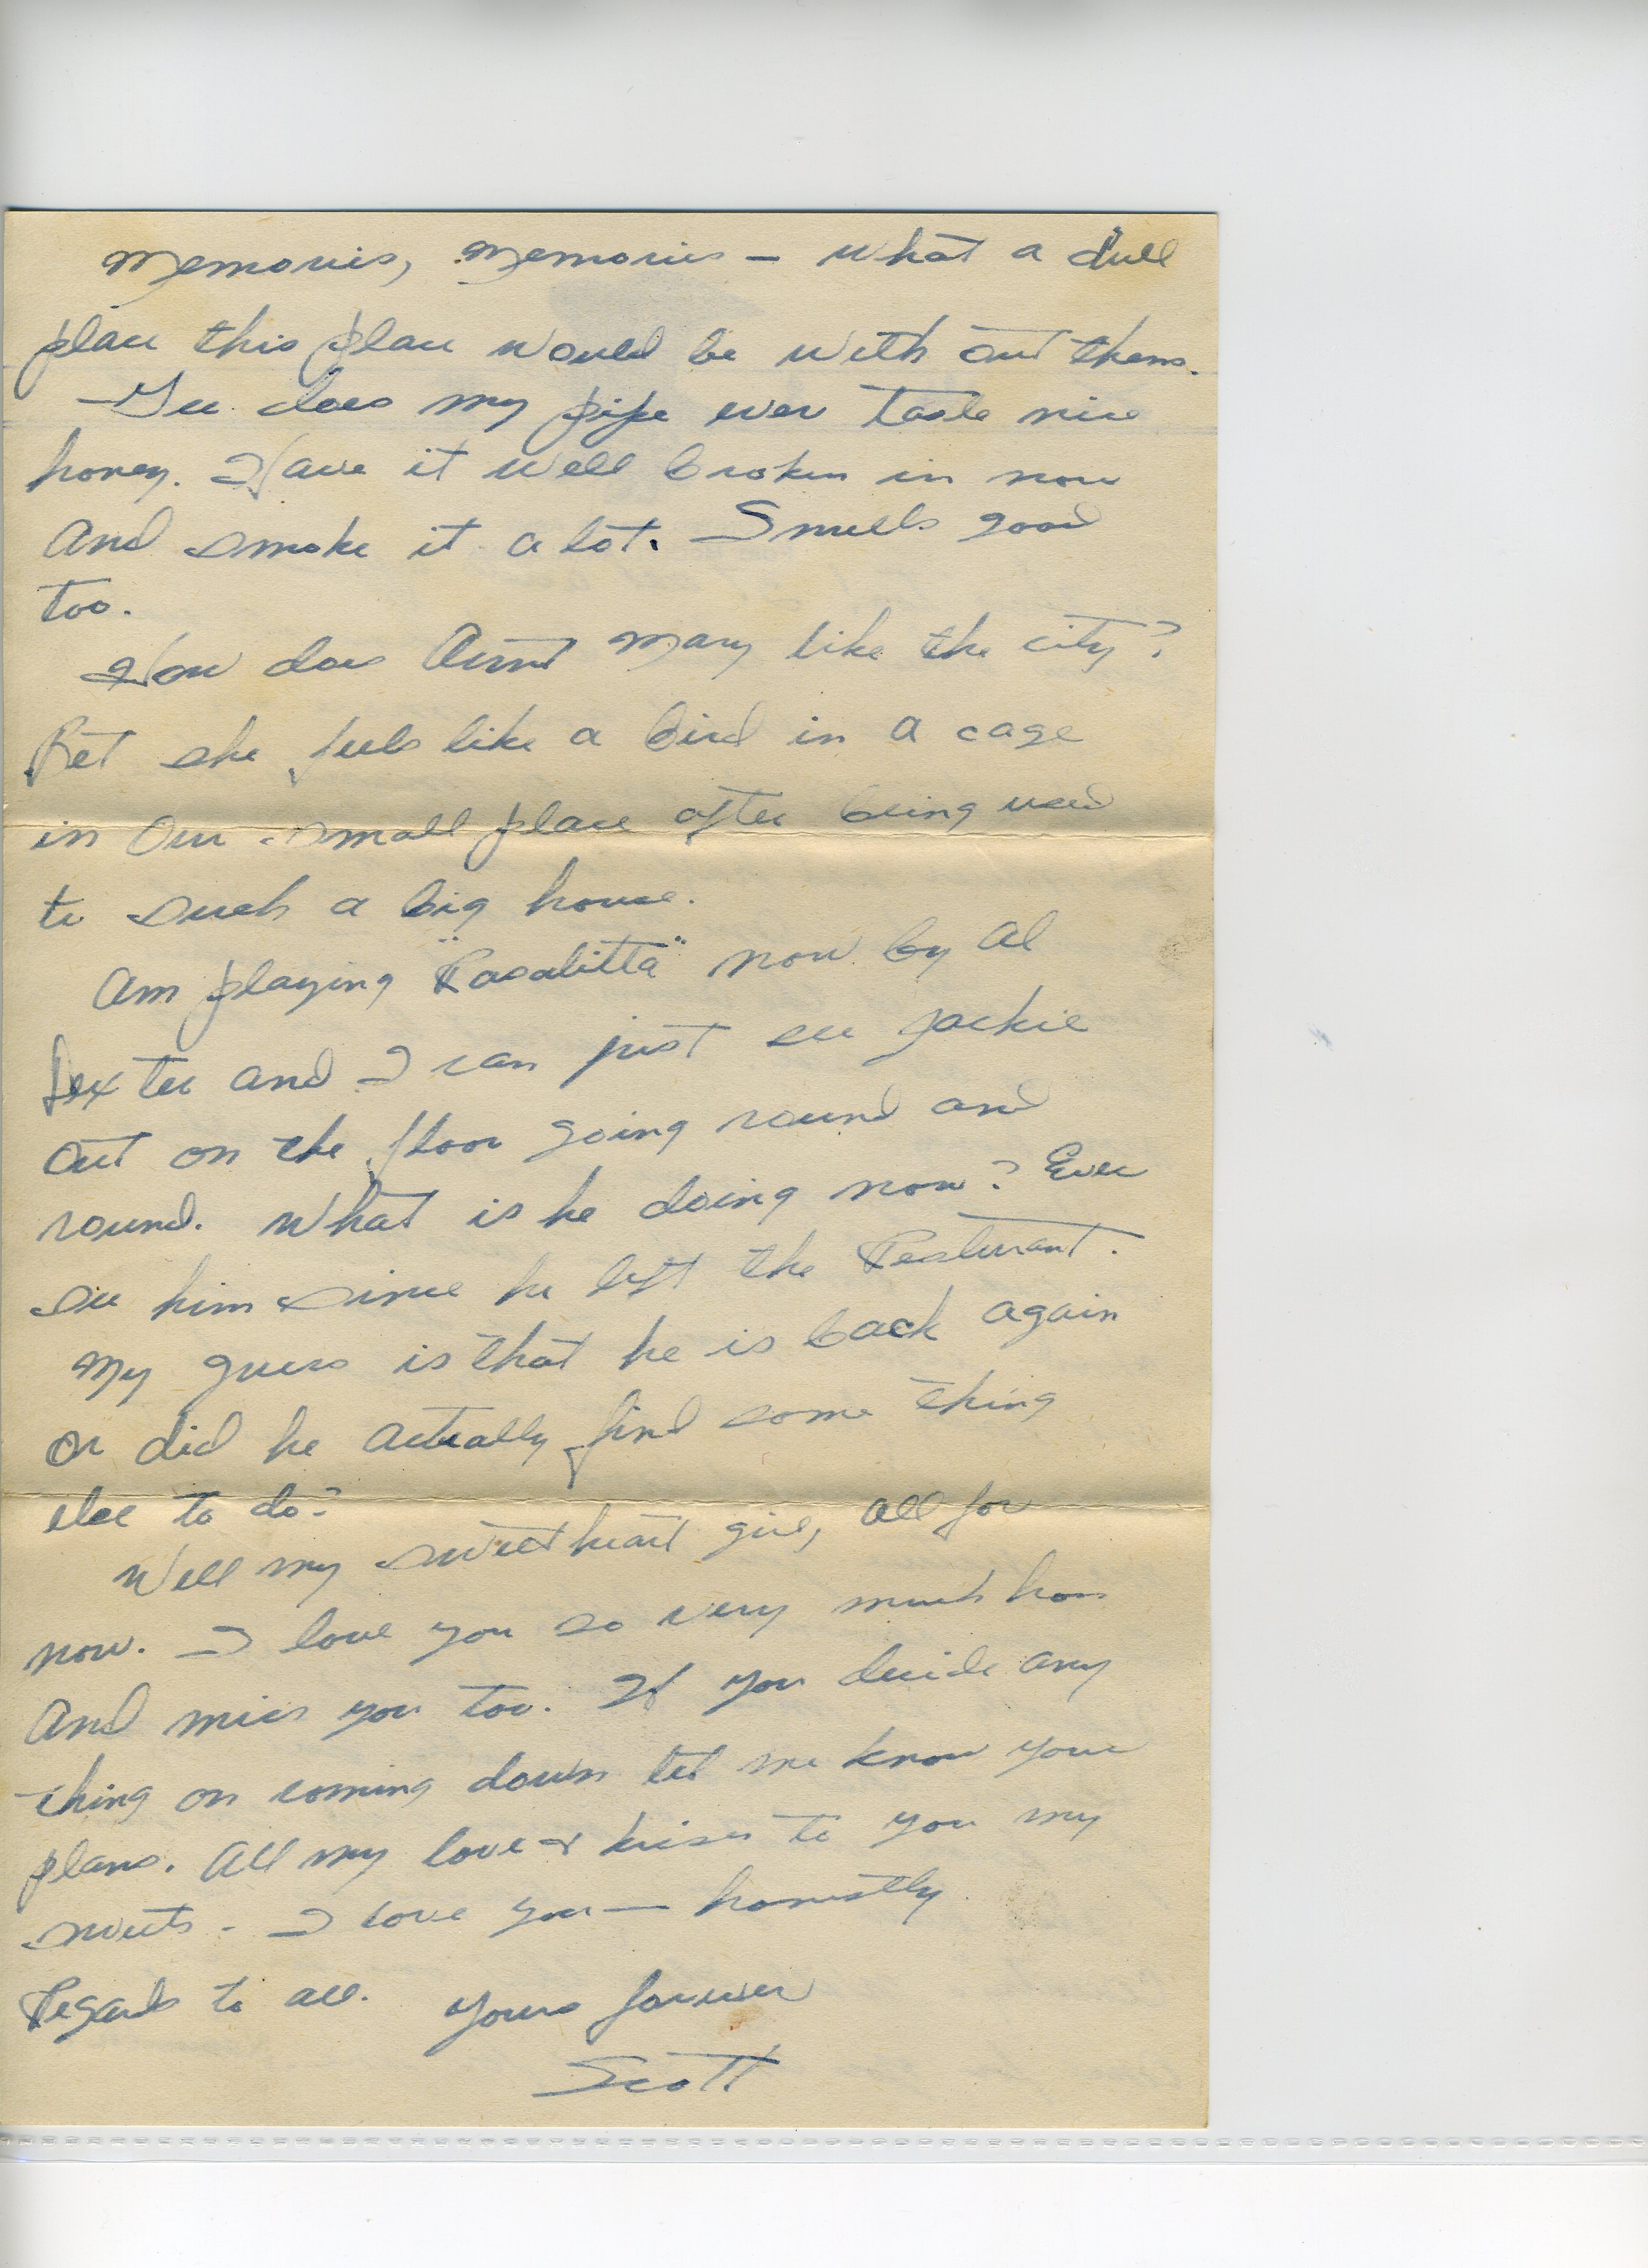 Memories, Memories – what a dull
place this place would be with out them.
Gee does my pipe ever taste nice
honey. Have it well broken in now
And smoke it a lot. Smells good
too.
How does Aunt Mary like the city?
Bet she feels like a bird in a cage
in our small place after being used
to such a big house.
Am playing "Rosalitta" now by Al
Dexter and I can just see Jackie
out on the floor going round and
round. What is he doing now? Ever
see him since he left the Resturant.
My guess is that he is back again
or did he actually find some thing
else to do?
Well my sweetheart girl, all for
now. I love you so very much hon
And miss you too. If you decide any
thing on coming down let me know your
plans. All my love & kisses to you my
sweets - I love you — honestly
Regards to all. Yours forever
Scott